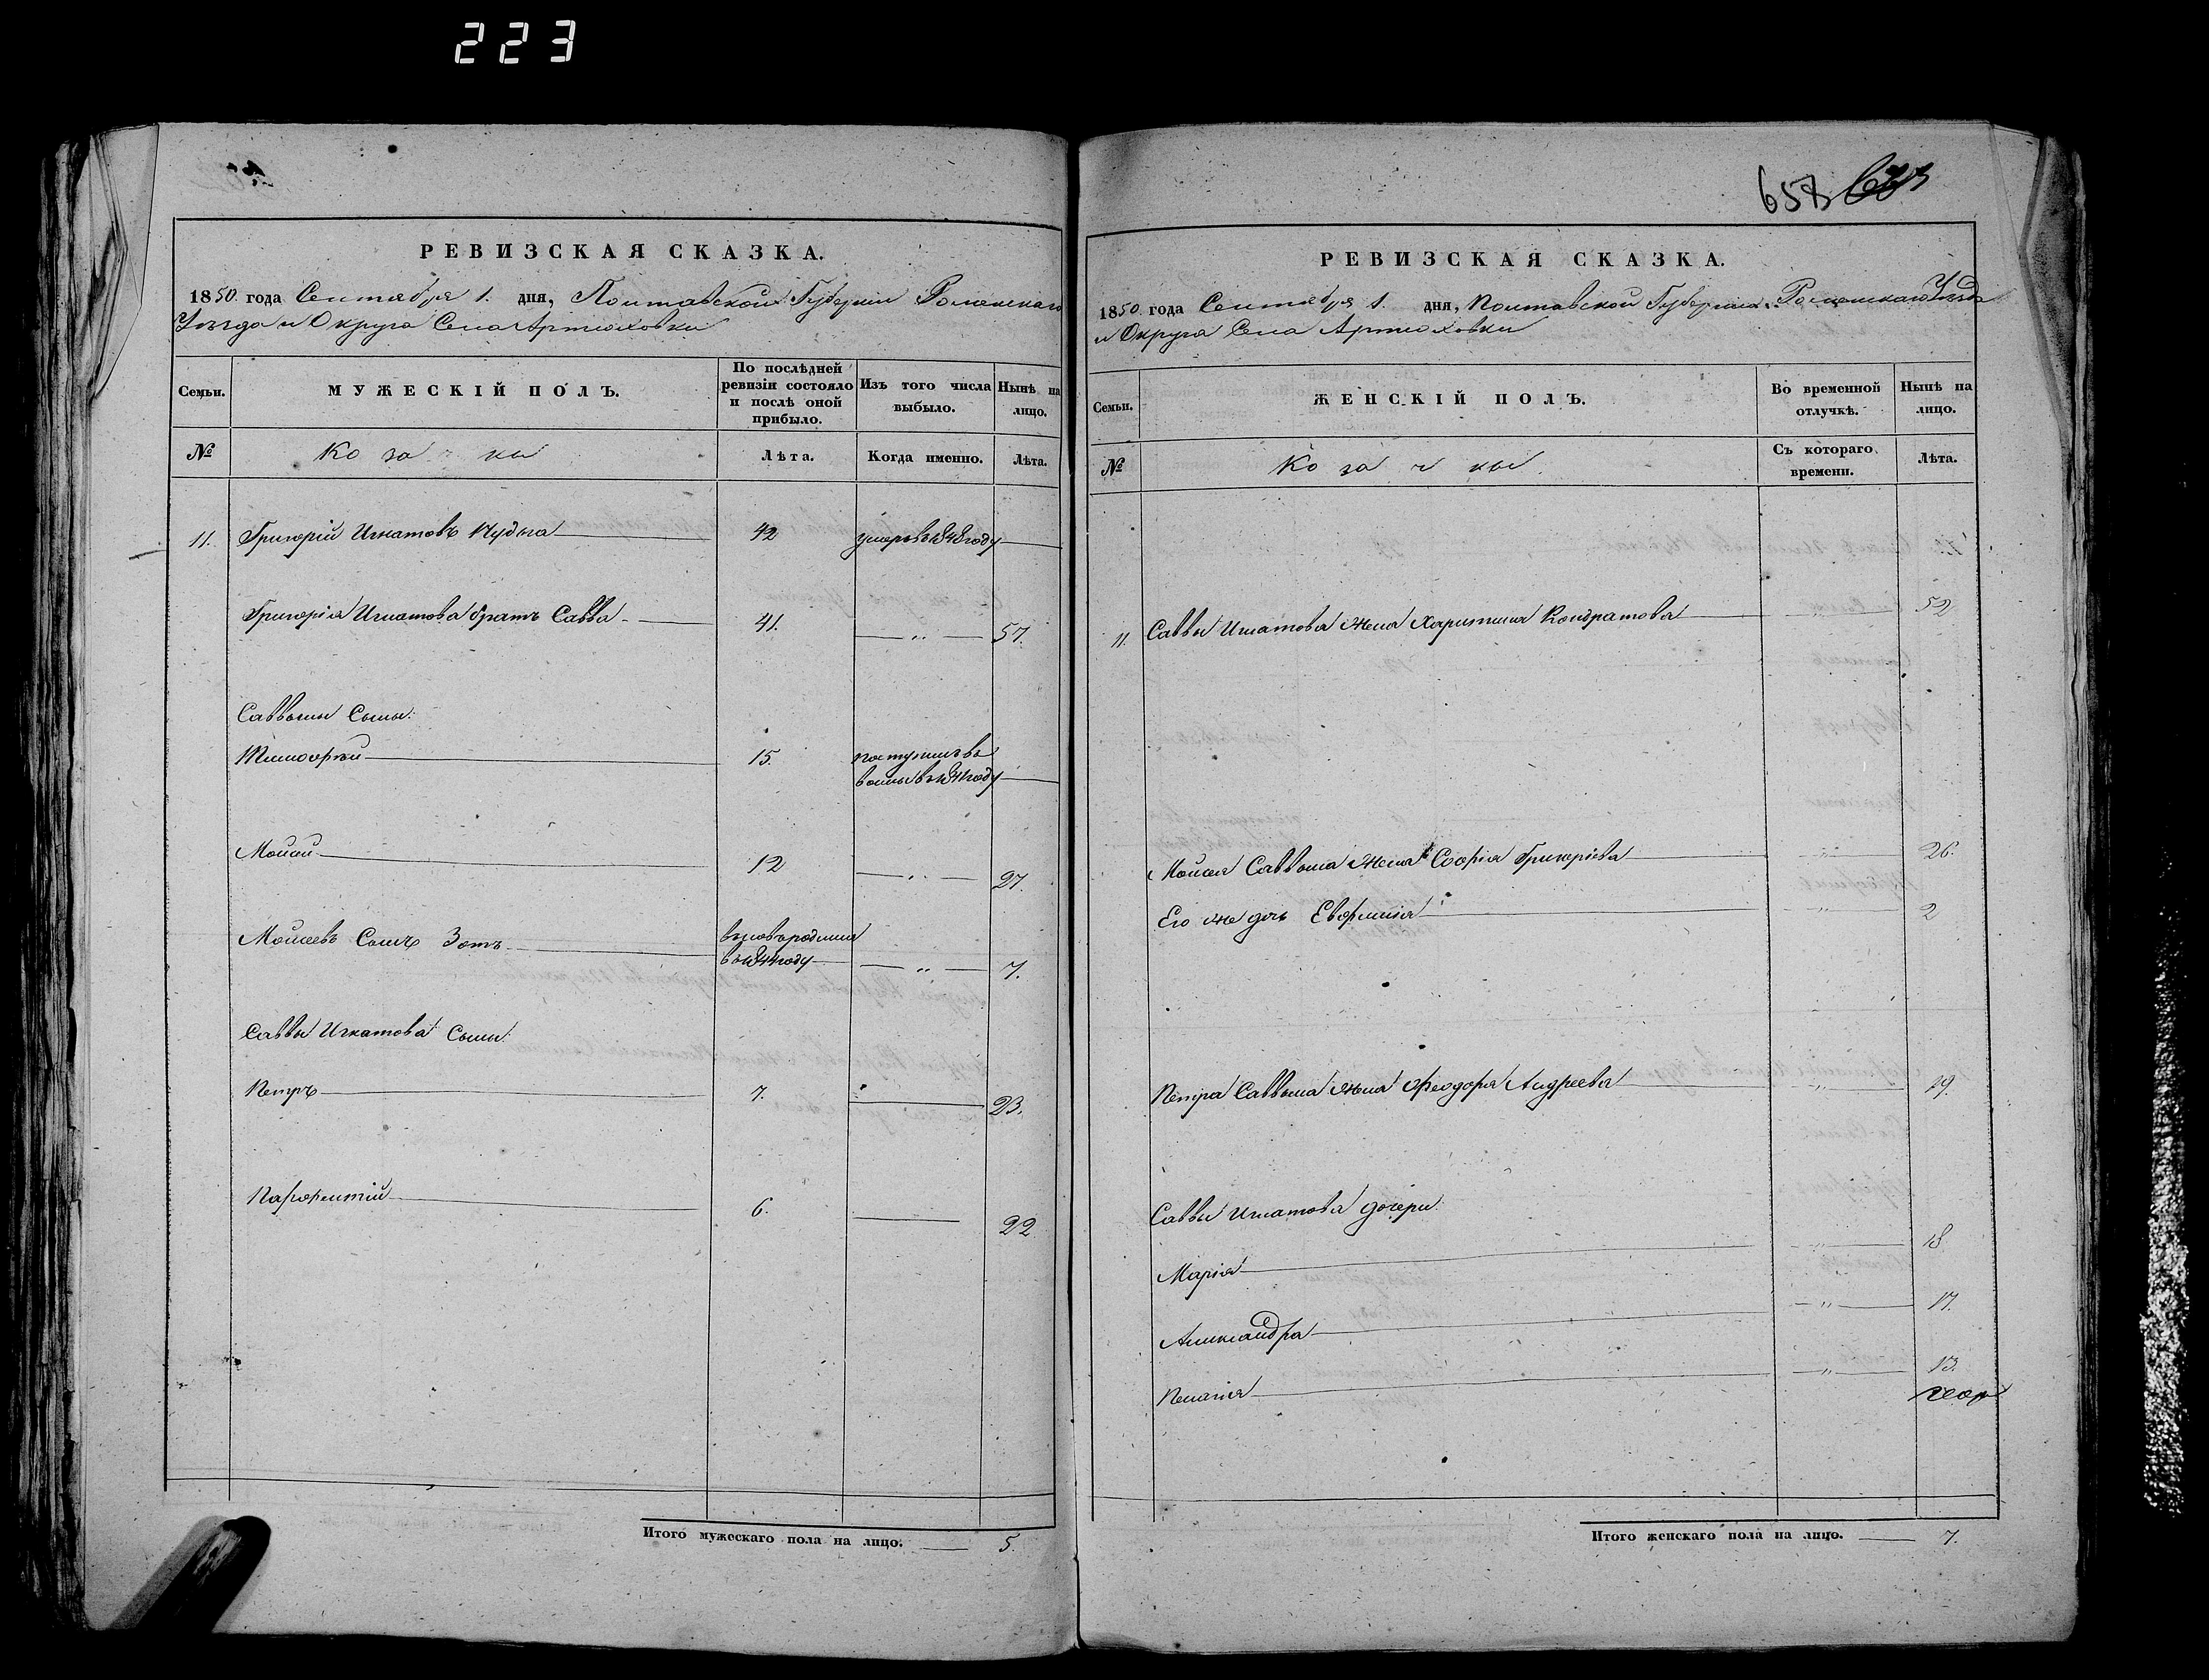 223
658
РЕВИЗСКАЯ СКАЗКА.
1850 года Сентября 1. дня, Полтавской Губернии Роменскаго
Уѣзда и Округа Села Артюховки
Семьи. МУЖЕСКІЙ ПОЛЪ. По послѣдней ревизіи состояло и послѣ оной прибыло. Изъ того числа выбыло. Нынѣ на лицо.
№ Козаки Лѣта. Когда именно. Лѣта.
11. Григорій Игнатовъ 42 умеръ въ 1848 году
Григорія Игнатова братъ Савва 41. „ 57.
Саввины Сыны:
Тимофей 15. поступилъ въ
въ 1841 году
Моисей 12 „ 27.
Моисеевъ Сынъ Зотъ вновьродился
въ 1844 году „ 7.
Саввы Игнатова Сыны:
Петръ 7. 23.
Пафнутій 6. 22
Итого мужескаго пола на лицо. 5.
РЕВИЗСКАЯ СКАЗКА.
1850 года Сентября 1. дня, Полтавской Губернии Роменскаго Уѣзда
и Округа Села Артюховки
Семьи. ЖЕНСКІЙ ПОЛЪ. Во временной отлучкѣ. Нынѣ на лицо.
№ Козачки. Съ котораго времени. Лѣта.
11. Саввы Игнатова жена Харитина Кондратова „ 52
Моисея Саввина жена Софія Григоріева „ 26.
Его же дочь Евфимія „ 2
Петра Саввина жена Феодора Андреева „ 19.
Саввы Игнатова дочери:
Марія „ 18
Александра „ 17.
Пелагія „ 13.
Итого женскаго пола на лицо. 7.